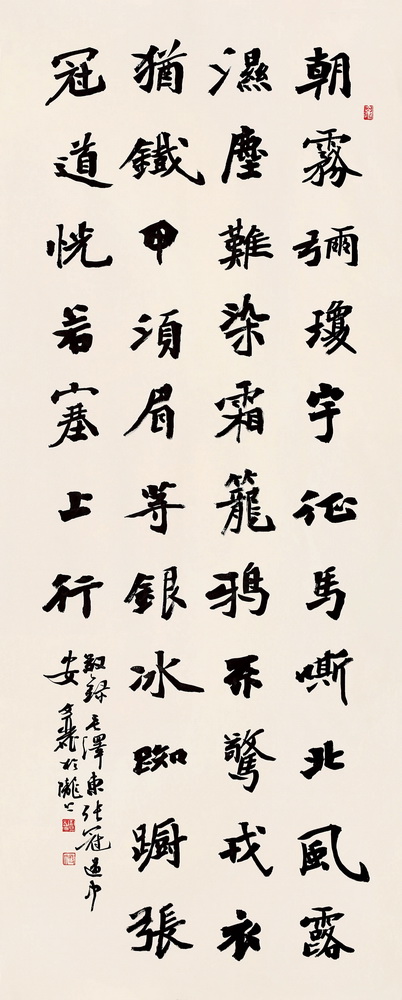 朝霧彌瓊宇征馬嘶北風露
濕塵難染霜籠鴉不驚戎衣
猶鐵甲須眉等銀冰踟蹰張
冠道恍若塞上行
敬録毛澤東张冠道中
安文於隴上